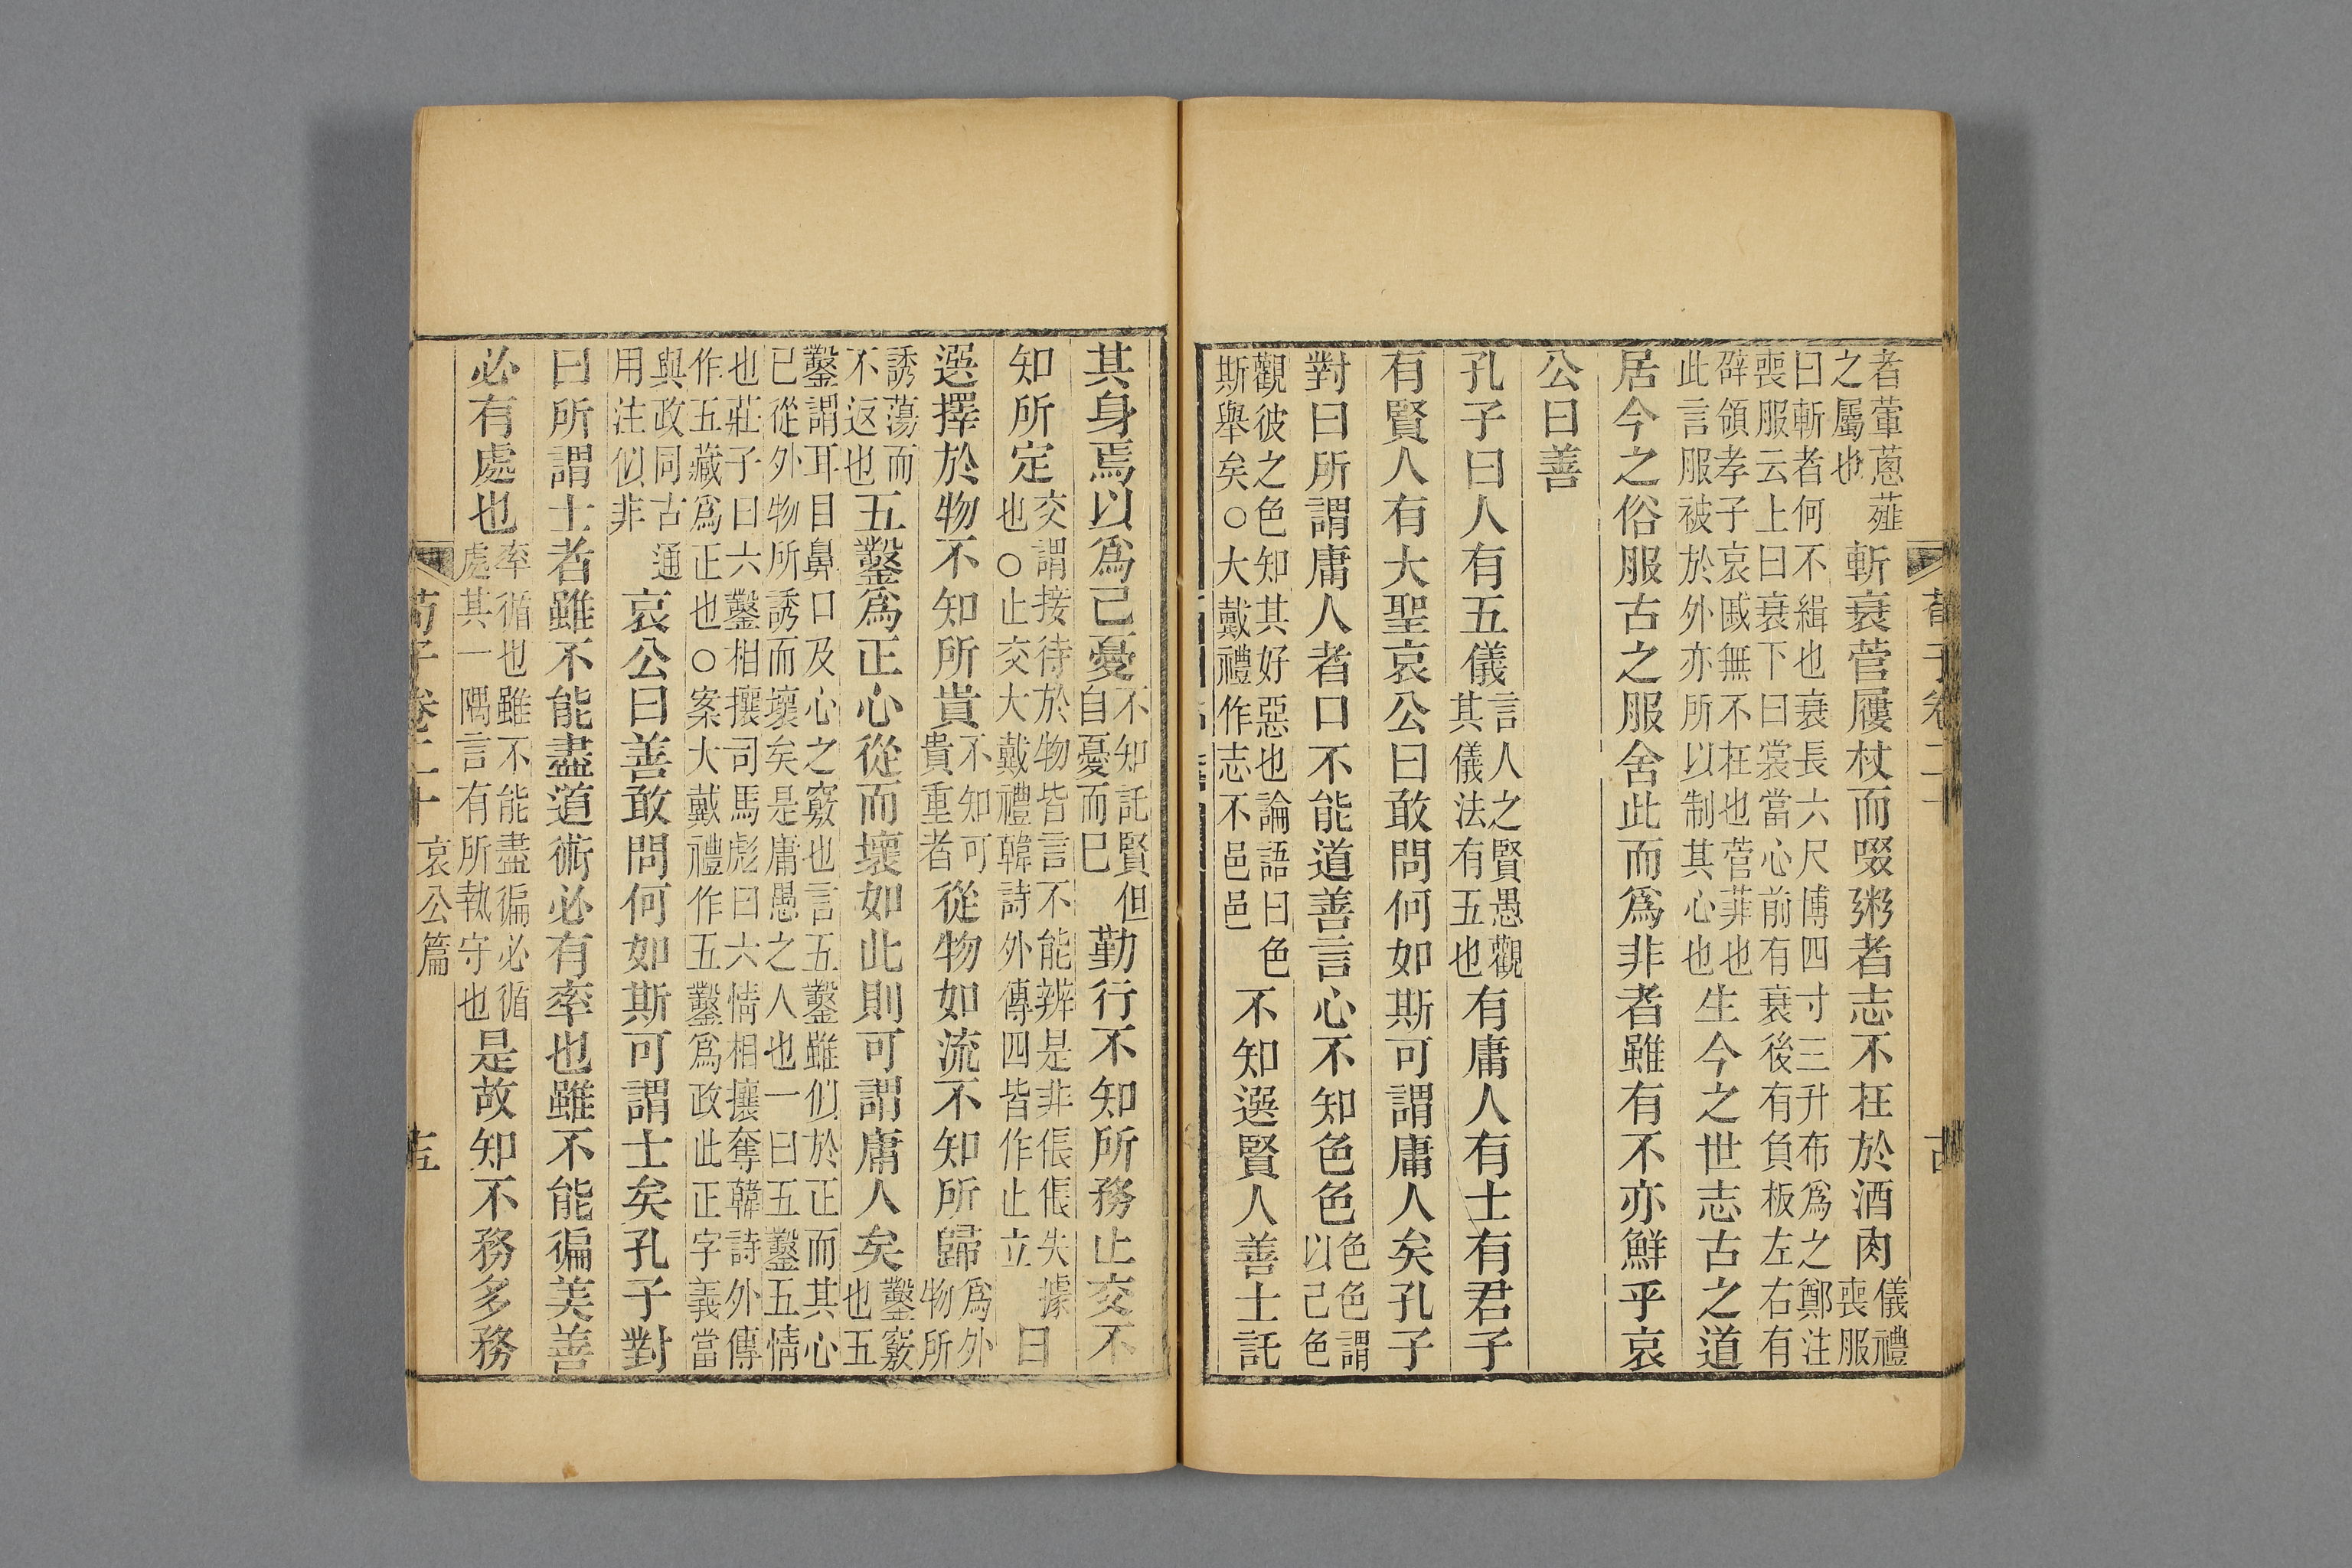 荀子卷二十
者葷蔥薤之屬也斬衰菅屨杖而啜粥者志不在於酒肉儀禮喪服
曰斬者何不緝也衰長六尺博四寸三升布爲之鄭注喪服云上曰衰下曰裳當心前有衰後有負板左右有
辟領孝子哀戚無不在也菅菲也此言服被於外亦所以制其心也生今之世志古之道
居今之俗服古之服舍此而爲非者雖有不亦鮮乎哀
公曰善
孔子曰人有五儀言人之賢愚觀其儀法有五也有庸人有士有君子
有賢人有大聖哀公曰敢問何如斯可謂庸人矣孔子
對曰所謂庸人者口不能道善言心不知色色色色謂以己色
觀彼之色知其好惡也論語曰色斯舉矣○大戴禮作志不邑邑不知選賢人善士託
其身焉以爲己憂不知託賢但自憂而巳勤行不知所務止交不
知所定交謂接待於物皆言不能辨是非倀倀失據也○止交大戴禮韓詩外傳四皆作止立日
選擇於物不知所貴不知可貴重者從物如流不知所歸爲外物所
誘蕩而不返也五鑿爲正心從而壞如此則可謂庸人矣鑿竅也五
鑿謂耳目鼻口及心之竅也言五鑿雖似於正而其心已從外物所誘而壞矣是庸愚之人也一曰五鑿五情
也莊子曰六鑿相攘司馬彪曰六情相攘奪韓詩外傳作五藏爲正也○案大戴禮作五鑿爲政此正字義當
與政同古通用注似非哀公曰善敢問何如斯可謂士矣孔子對
曰所謂士者雖不能盡道術必有率也雖不能徧美善
必有處也率循也雖不能盡徧必循處其一隅言有所執守也是故知不務多務
荀子卷二十 哀公篇